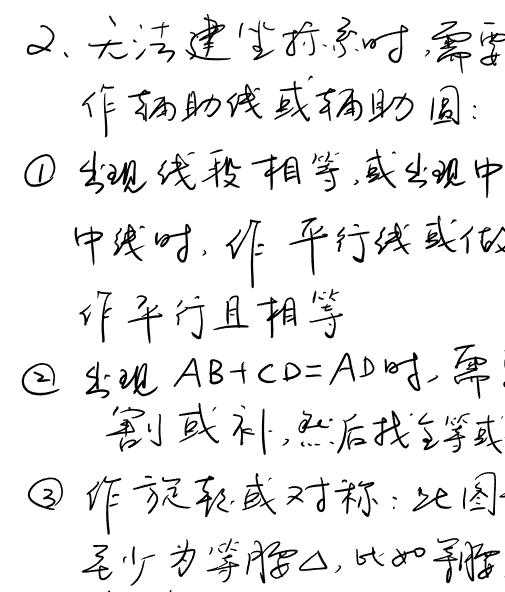 2、无法建坐标系时,需要
作辅助线或辅助圆:
① 出现线段相等,或出现中
中线时,作平行线或做
作平行且相等
② 出现 AB+CD=AD时,需
割或补,然后找全等或
③ 作旋转或对称:此图
至少为等腰△,比如等腰